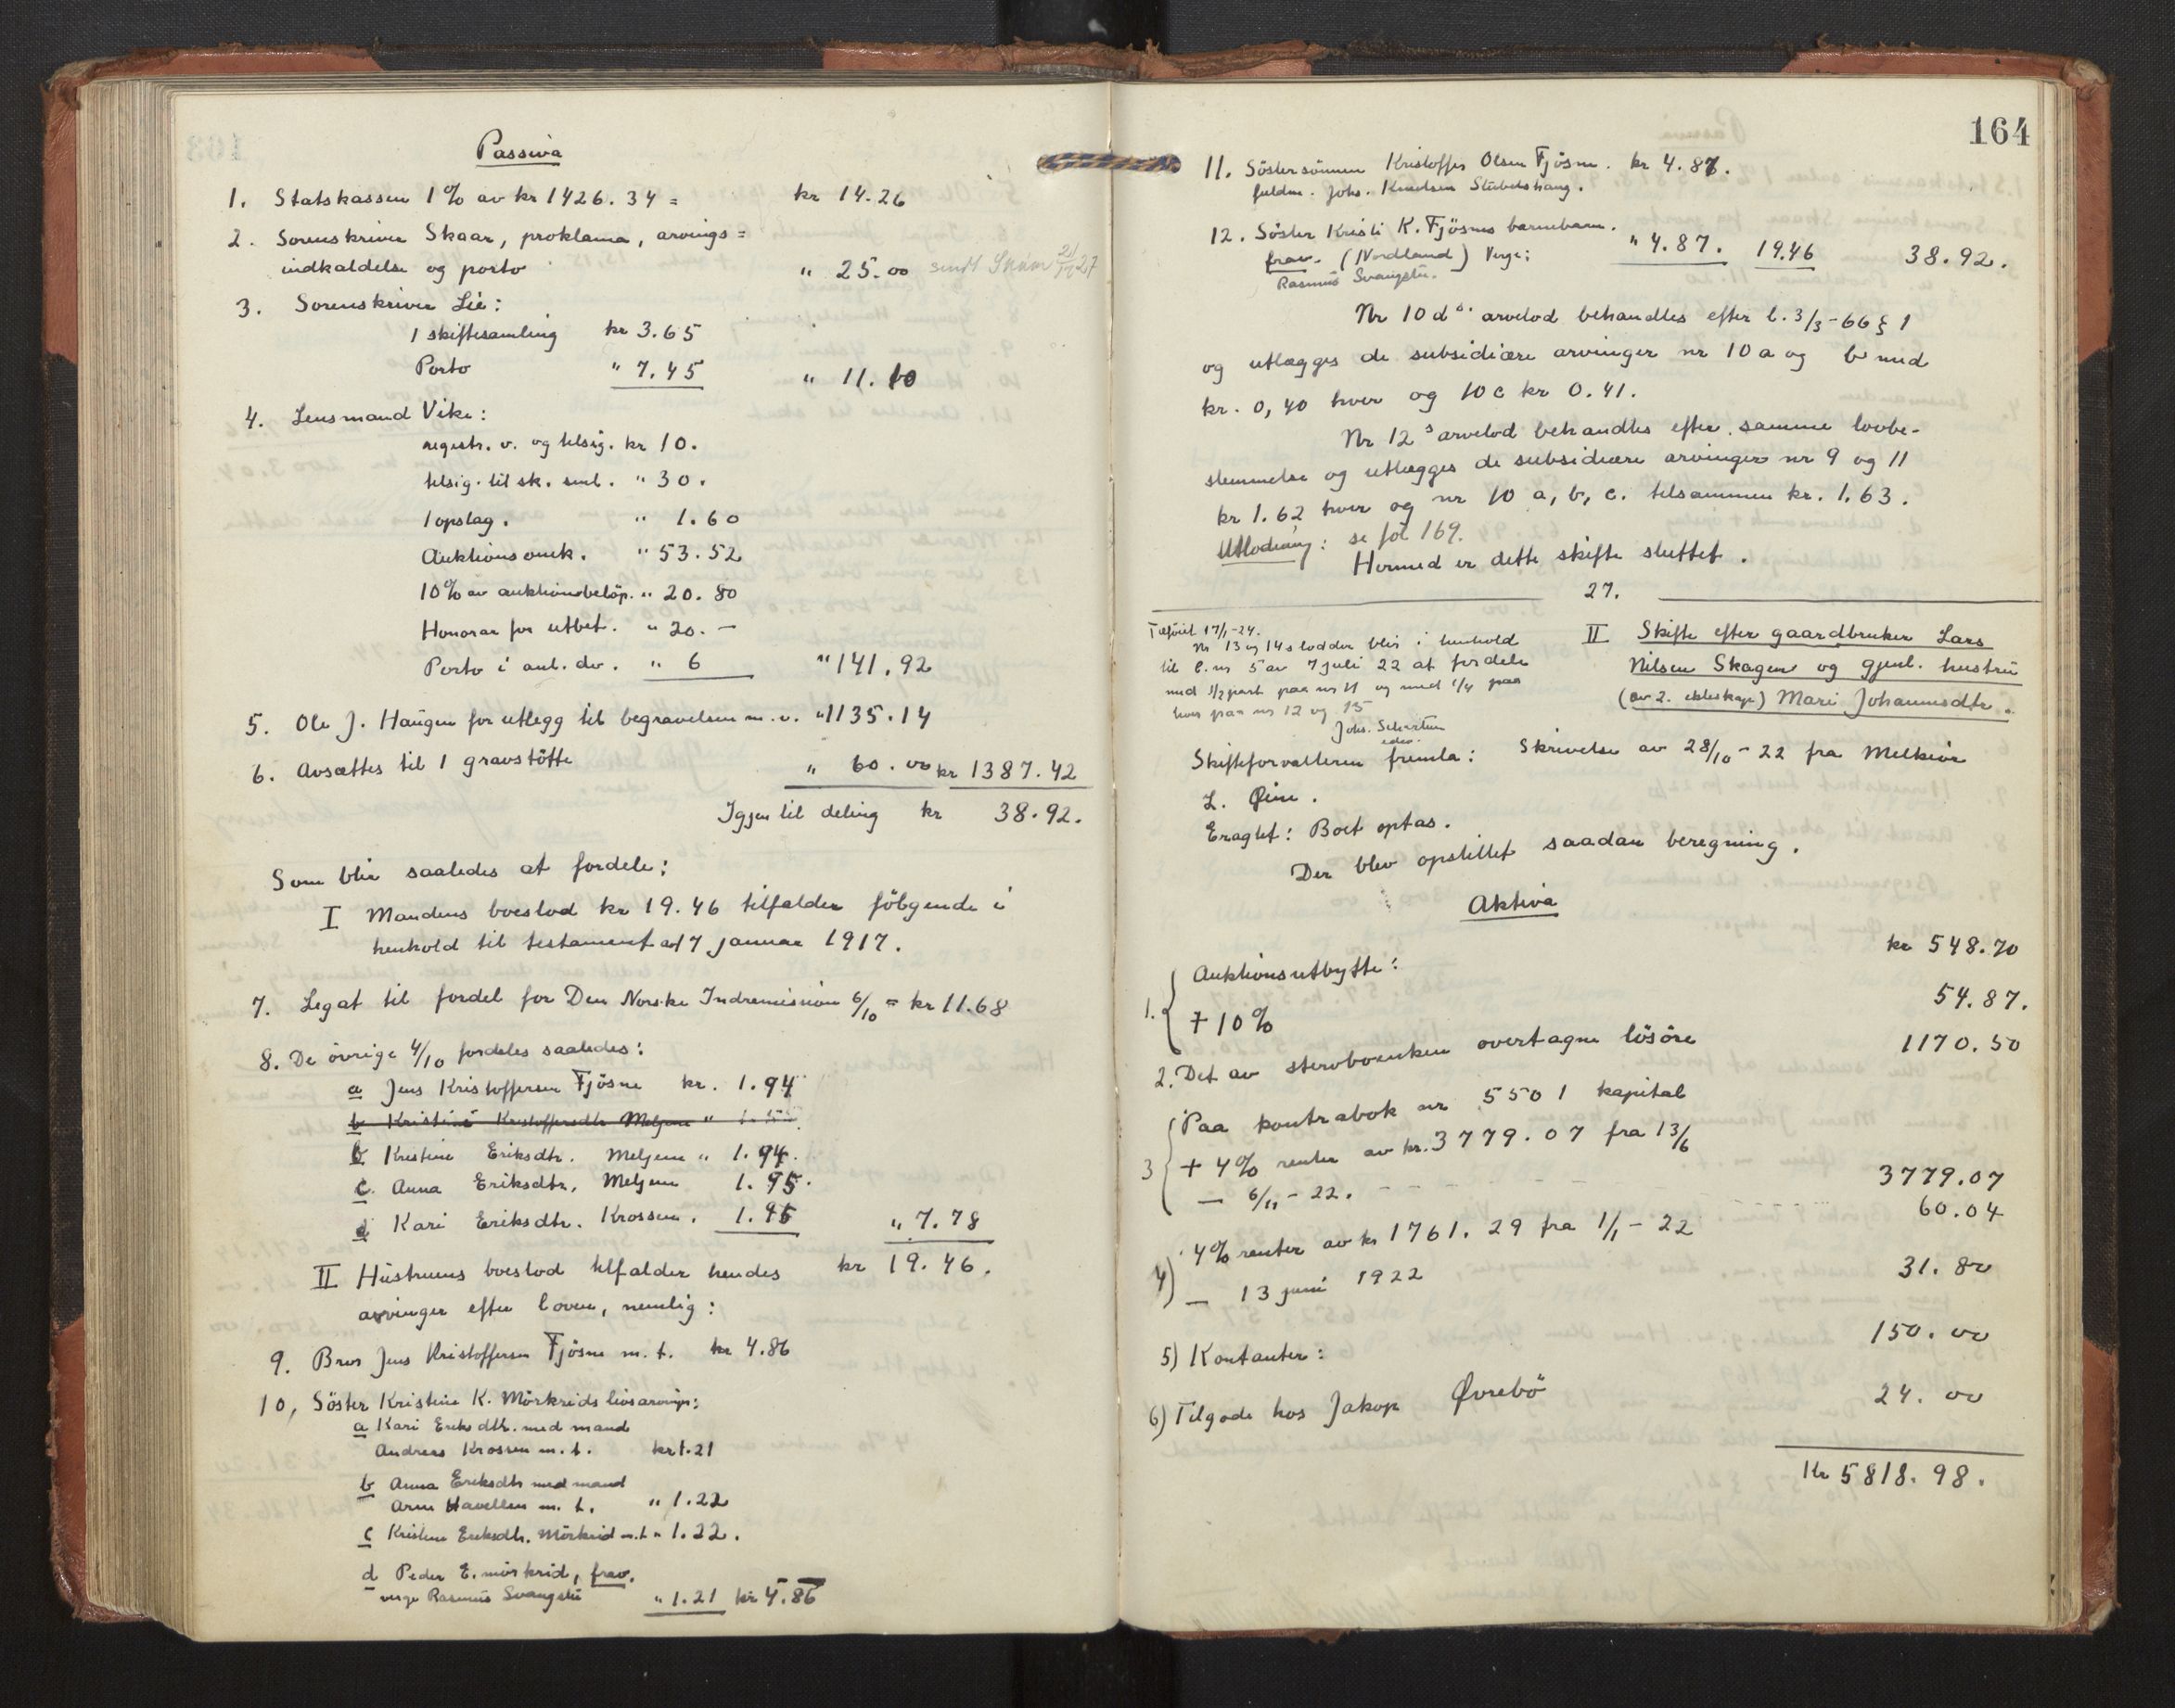 Passiva
1. Statskassen 1% av kr 1426.34 = kr 14.26
2. Sorenskriver Skaar, proklama, arvings=
indkaldelse og porto " 25.00 sendt Skaar
3. Sorenskriver Lie:
1 skiftesamling kr 3.65
Porto " 7.45 " 11.10
4. Lensmand Vike:
registr. v. og tilsig. kr 10.
tilsig. til sk. saml. " 30.
1 opslag. " 1.60
Auktionsomk. " 53.52
10% av auktionsbeløp. " 20.80
Honorar for utbet. " 20.-
Porto i anl. do. " 6 " 141.92
5. Ole J. Haugen for utlegg til begravelsen m.v. " 1135.14
6. Avsættes til 1 gravstøtte " 60.00 kr 1387.42
Igjen til deling kr 38.92.
Som blir saaledes at fordele:
I Mandens boeslod kr 19.46 tilfalder følgende i
henhold til testament af 7 januar 1917.
7. Legat til fordel for Den Norske Indremission 6/10 = kr 11.68
8. De øvrige 4/10 fordeles saaledes:
a Jens Kristoffersen Fjøsne kr. 1.94
b Kristine Kristoffersdtr Meljene "
b Kristine Eriksdtr. Meljene " 1.94.
c. Anna Eriksdtr, Meljene 1.95.
d Kari Eriksdtr. Krossen. 1.95 " 7.78
II Hustruens boeslod tilfalder hendes kr 19.46.
arvinger efter loven, nemlig:
9. Bror Jens Kristoffersen Fjøsne m.t. kr 4.86
10, Søster Kristine K. Mørkrids livsarving:
a Kari Eriksdtr. med mand
Andreas Krossen m.t. kr 1.21
b Anna Eriksdtr med mand
Arne Havellen m.t. " 1.22
c Kristine Eriksdtr. Mörkrid m.t " 1.22.
d Peder E. mörkrid, frav.
verge Rasmus Svangstu " 1.21 kr 4.86
164
11. Søstersønnen Kristoffer Olsen Fjøsne. kr 4.87.
fuldm. Johs. Knudsen Stubekshaug.
12. Søster Kristi K. Fjøsnes barnebarn.
frav. (Nordland) Verge; " 4.87. 19.46 38.92.
Rasmus Svangstu.
Nr 10 ds. arvelod behandles efter l. 3/3-66 § 1
og utlægges de subsidiære arvinger nr 10 a og b med
kr. 0,40 hver og 10 c kr 0.41.
Nr 12s arvelod behandles efter samme lovbe-
stemmelse og utlægges de subsidiære arvinger nr 9 og 11
kr 1.62 hver og nr 10 a, b, c. tilsammen kr. 1.63.
Utlodning: se fol 169.
Hermed er dette skifte sluttet.
27.
Tilføiet 17/1-24.
Nr 13 og 14s lodder blir i henhold
til l. nr 5 av 7 juli 22 at fordele
med 1/2 part paa nr 11 og med 1/4 paa
hver paa nr 12 og 15
Johs. Selvertun
edsv.
II Skifte efter gaardbruker Lars
Nilsen Skagen og gjenl. hustru
(av 2. ekteskap) Mari Johannesdtr.
Skifteforvalteren fremla: Skrivelse av 28/10-22 fra Melkior
L. Øine.
Eragtet: Boet optas.
Der blev opstillet saadan beregning.
Aktiva
1. Auktionsutbytte: kr 548.70
+ 10% 54.87.
2. Det av stervboenken overtagne løsøre 1170.50
3 Paa kontrabok nr 5501 kapital
+ 4% renter av kr. 3779.07 fra 13/6 3779.07
— 6/11-22. 60.04
4) 4% renter av kr 1761.29 fra 1/1-22
— 13 juni 1922 31.80
5) Kontanter: 150.00
6) Tilgode hos Jakop Øvrebö 24.00
Kr 5818.98.